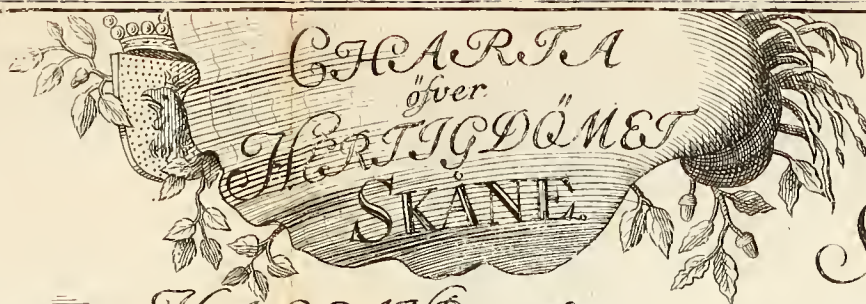 CHARTA
öfver
HERTIGDÖMET
SKÅNE